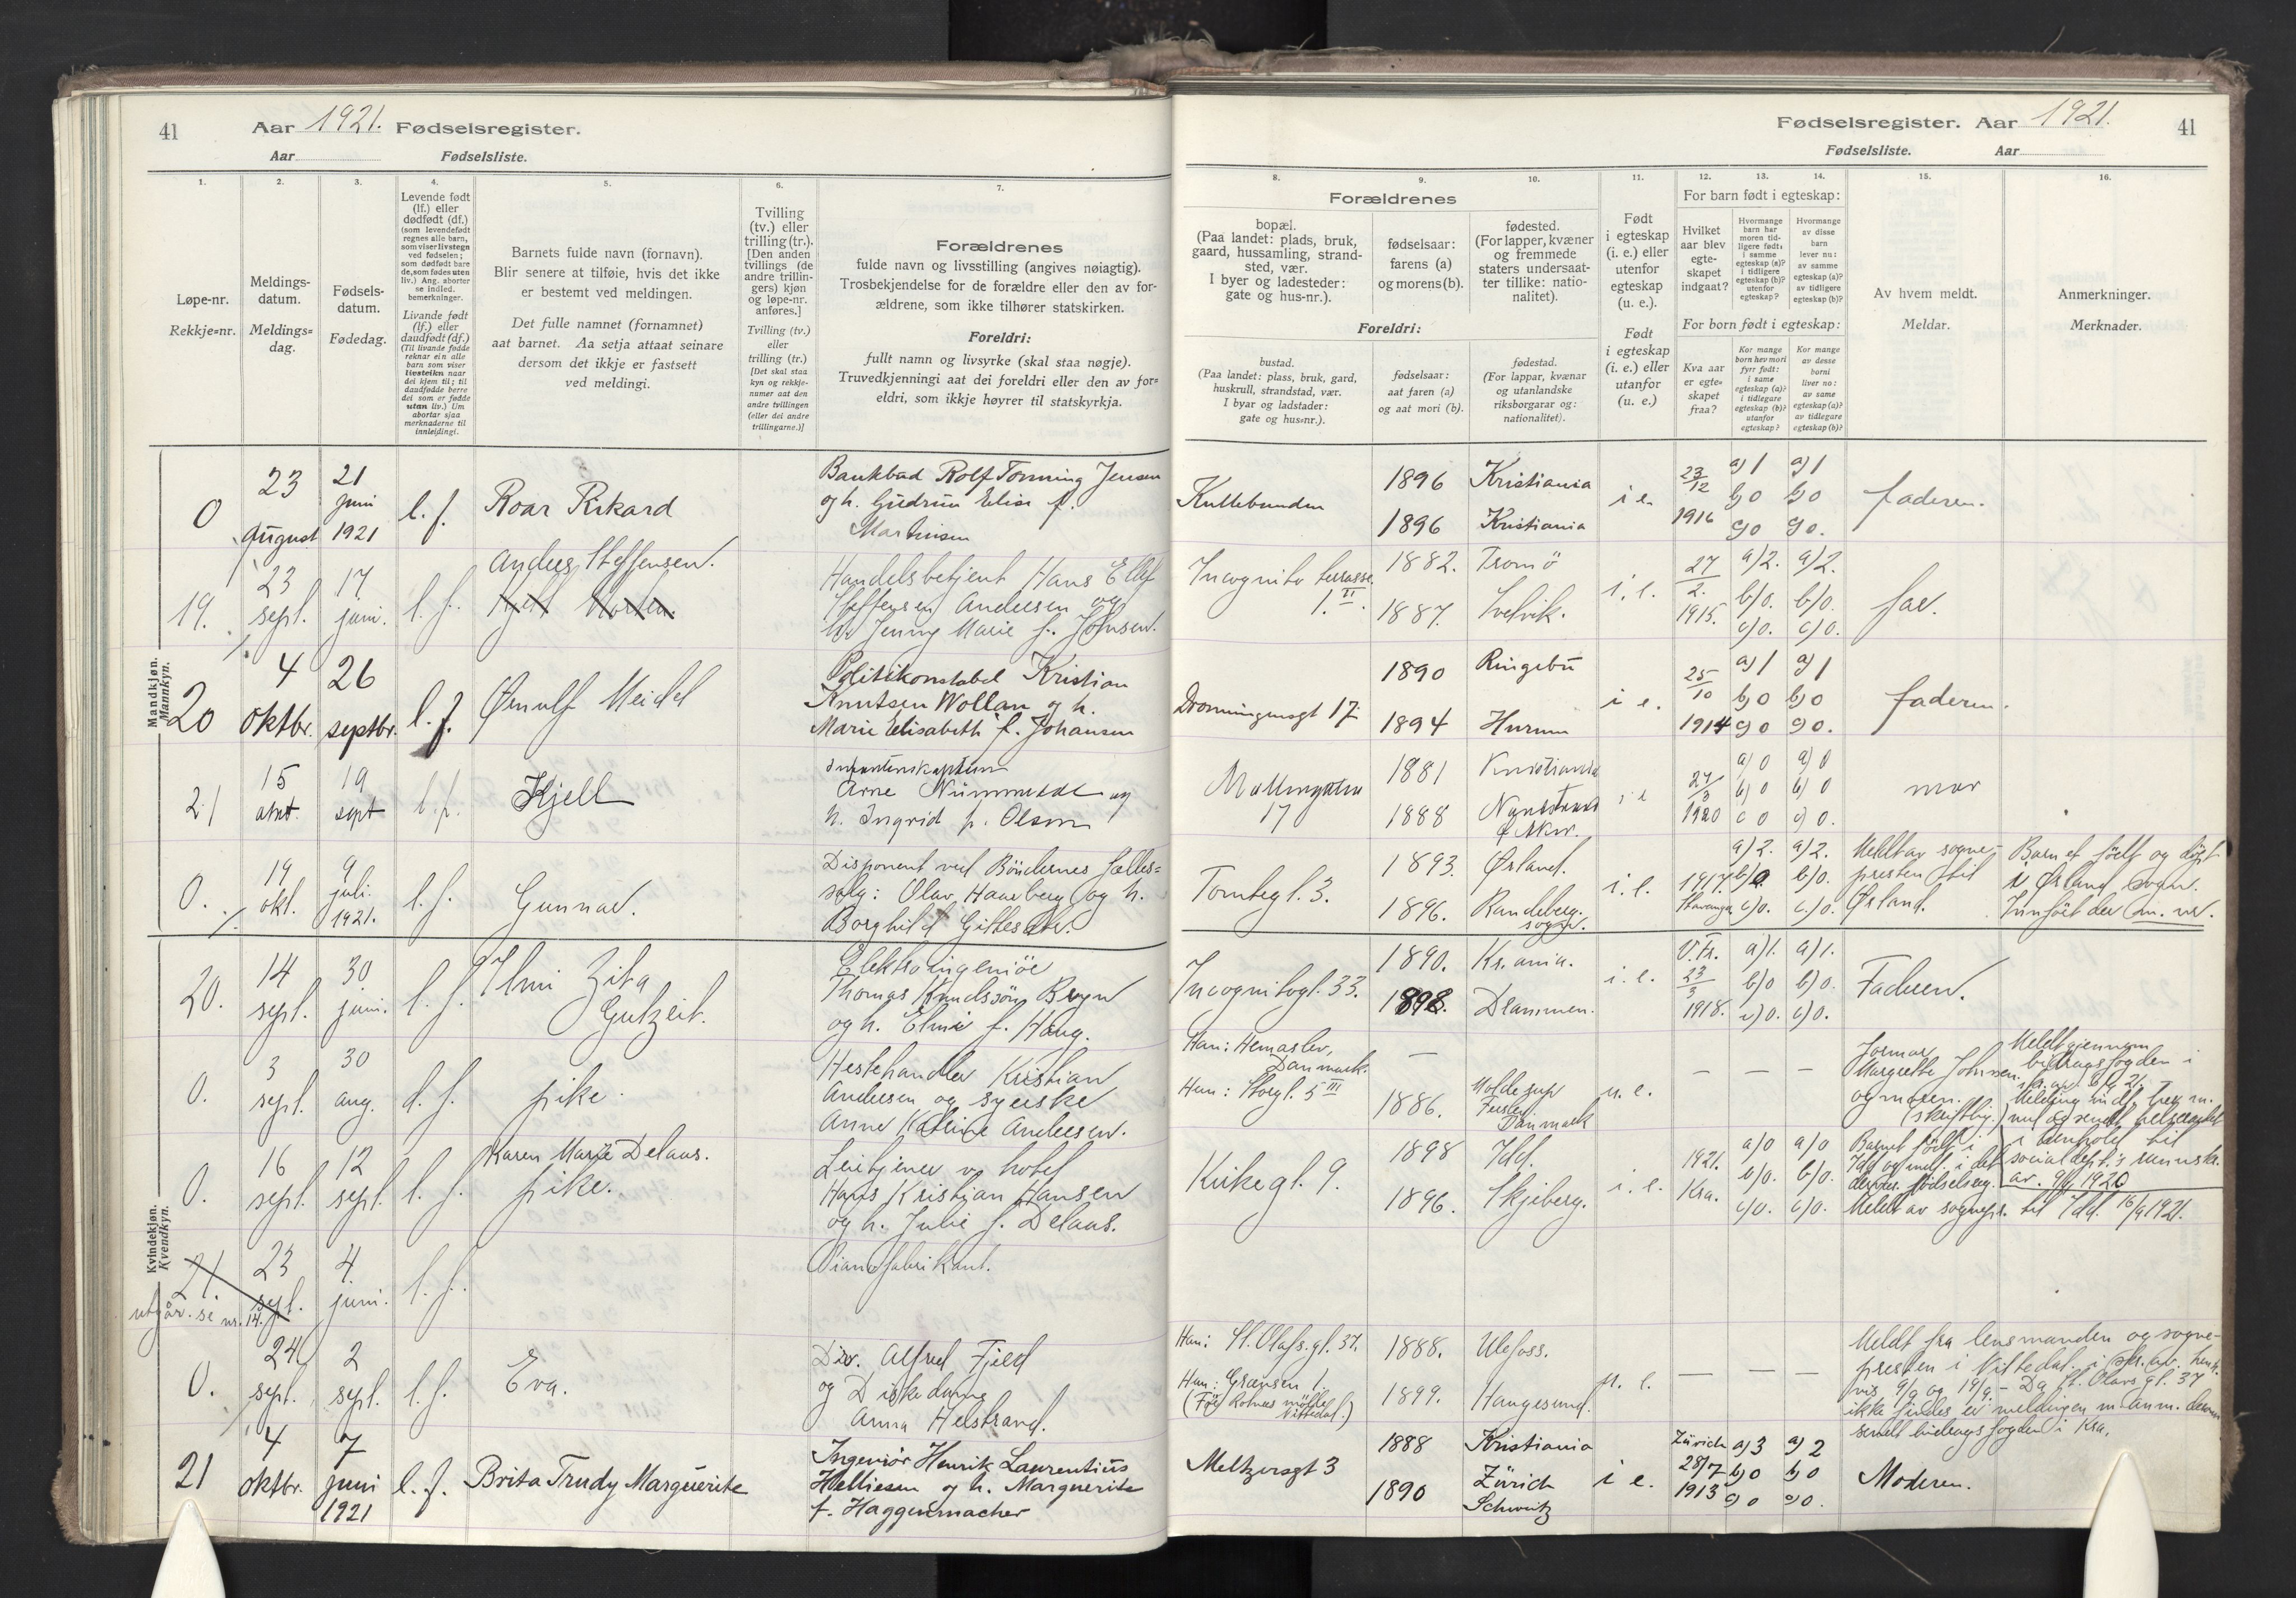 41
Aar 1921. Fødselsregister.
Aar
Fødselsliste.
1.
2.
3.
4.
5.
6.
7.
Løpe-nr.
Rekkje=nr.
Meldings-
datum.
Meldings=
dag.
Fødsels-
datum.
Fødedag.
Levende født
(lf.) eller
dødfødt (df.)
(som levendefødt
regnes alle barn,
som viser livstegn
ved fødselen;
som dødfødt bare
de, som fødes uten
liv.) Ang. aborter
se indled.
bemerkninger.
Livande født
(lf.) eller
daudfødt (df.)
(Til livande fødde
reknar ein alle
barn som viser
livsteikn naar
dei kjem til; til
daudfødde berre
dei som er fødde
utan liv.) Um
abortar sjaa
merknaderne til
innleidingi.
Barnets fulde navn (fornavn).
Blir senere at tilføie, hvis det ikke
er bestemt ved meldingen.
Det fulle namnet (fornamnet)
aat barnet. Aa setja attaat seinare
dersom det ikkje er fastsett
ved meldingi.
Tvilling
(tv.) eller
trilling (tr.).
[Den anden
tvillings (de
andre trillin-
gers) kjøn
og løpe-nr.
anføres.]
Tvilling (tv.)
eller
trilling (tr.)
[Det skal staa
kyn og rekkje-
numer aat den
andre tvillingen
(eller dei andre
trillingarne.)]
Forældrenes
fulde navn og livsstilling (angives nøiagtig).
Trosbekjendelse for de forældre eller den av for-
ældrene, som ikke tilhører statskirken.
Foreldri:
fullt namn og livsyrke (skal staa nøgje).
Truvedkjenningi aat dei foreldri eller den av for=
eldri, som ikkje høyrer til statskyrkja.
Mandkjøn.
Mannkyn.
0
23
august
21
juni
1921
l. f.
Roar Rikard
Bankbud Rolf Tonning Jensen
og h. Gudrun Elise f.
Martinsen
19.
23
sept.
17
juni.
l. f.
Anders Steffensen.
Handelsbetjent Hans Ellef
Steffensen Andersen og
h. Jenny Marie f. Johnsen.
20
4
oktbr.
26
septbr.
l. f.
Ørnulf Meidel
Politikonstabel Kristian
Knutsen Wollan og h.
Marie Elisabeth f. Johansen
21
15
19
sept
l. f.
Kjell
Arne Nummedal og
h. Ingrid f. Olsen
0.
19
okt.
9
juli.
1921.
l. f.
Gunnar.
Disponent ved Böndernes fælles=
salg: Olav Haarberg og h.
Borghild
Kvindekjøn.
Kvendkyn.
20.
14
sept.
30
juni.
l. f.
Elmi Zita
Gutzeit.
Elektroingeniør
Thomas Knudssøn Bryn
og h. Elmie f. Haug.
0.
3
sept.
30
aug.
d. f.
pike.
Hestehandler Kristian
Andersen og syerske
Anne Katrine Andersen.
0.
16
sept.
12
sept.
l. f.
Karen Marie Delaas.
pike.
Leietjener v. hotel
Hans Kristjan Hansen
og h. Julie f. Delaas.
21.
utgår. se nr. 14.
23
sept.
4.
juni.
l. f.
Pianofabrikant.
0.
24
sept.
2
sept.
l. f.
Eva.
Dir. Alfred Fjeld
og Diskedame
Anna Helstrand.
21
4
oktbr.
7
juni
1921
l. f.
Brita Trudy Marguerite
Ingeniør Henrik Laurentius
Helliesen og h. Marguerite
f. Haggenmacher
Fødselsregister. Aar 1921.
41
Fødselsliste.
Aar
8.
9.
10.
11.
12.
13.
14.
15.
16.
Forældrenes
bopæl.
(Paa landet: plads, bruk,
gaard, hussamling, strand-
sted, vær.
I byer og ladesteder:
gate og hus-nr.).
fødselsaar:
farens (a)
og morens (b).
fødested.
(For lapper, kvæner
og fremmede
staters undersaat-
ter tillike: natio-
nalitet).
Foreldri:
bustad.
(Paa landet: plass, bruk, gard,
huskrull, strandstad, vær.
I byar og ladstader:
gate og hus=nr.).
fødselsaar:
aat faren (a)
og aat mori (b).
fødestad.
(For lappar, kvænar
og utanlandske
riksborgarar og:
nationalitet).
Født
i egteskap
(i. e.) eller
utenfor
egteskap
(u. e.).
Født
i egteskap
(i. e.) eller
utanfor
(u. e.)
For barn født i egteskap:
Hvilket
aar blev
egte-
skapet
indgaat?
Hvormange
barn har
moren tid-
ligere født:
i samme
egteskap (a)?
i tidligere
egteskap (b)?
utenfor
egteskap?
Hvormange
av disse
barn
lever nu:
av samme
egteskap (a)?
av tidligere
egteskap (b)?
For born født i egteskap:
Kva aar
er egte=
skapet
fraa?
Kor mange
born hev mori
fyrr født:
i same
egteskap (a)?
i tidlegare
egteskap (b)?
utanfor
egteskap?
Kor mange
av desse
borni
liver no:
av same
egteskap (a)?
av tidlegare
egteskap (b)?
Av hvem meldt.
Meldar.
Anmerkninger.
Merknader.
Kullebunden
1896
1896
Kristiania
Kristiania
i e.
23/12
1916
a) 1
b) 0
c) 0
a) 1
b) 0
c) 0.
faderen.
Incognito terrasse
1. VI.
1882.
1887.
Tromö
Svelvik.
i. e.
27/2.
1915.
a) 2.
b) 0.
c) 0.
a) 2.
b) 0.
c) 0.
far.
Dronningensgt 17
1890
1894
Ringebu
Hurum
i e.
25/10
1914
a) 1
b) 0
c) 0
a) 1
b) 0
c) 0.
faderen.
17
1881
1888
Kristiania
i e
27/3
1920
a) 0
b) 0
c 0
a) 0
b) 0
c) 0.
mor
Tomtegt. 3.
1893.
1896.
Ørland.
Randeberg.
sogn.
i. e.
1917.
Stavanger
a) 2.
b) 0.
c) 0.
a) 2.
b) 0.
c.) 0.
Meldt av sogne-
presten til
Ørland.
Barnet født og døpt
i Ørland sogn.
Innført der m. nr.
Incognitogt. 33.
1890.
1898.
Kr.ania.
Drammen.
i. e.
23/3
1918.
a) 1.
b) 0
c) 0.
a) 1.
b) 0.
c) 0.
Faderen.
Han: Hemaslev,
Danmark.
Hun: Storgt. 5 III
—
1886.
Danmark
u. e.
— — —
Jormor
Margrethe Johnsen
og moren.
(skriftlig.)
Meldt gjennem
bidragsfogden i
Kirkegt. 9.
1898
1896.
Idd.
Skjeberg.
i. e.
1921.
Kra.
a) 0
b) 0.
c) 0.
a) 0
b) 0.
c) 0.
Barnet født i
Idd og indf. i det
derv. fødselsreg.
Meldt av sognepr. til Idd. 16/9 1921.
i henhold til
socialdept.'s rundskr.
av. 9/4 1920
Han: St. Olafs.gt. 37.
Hun: Grænsen 1.
1888.
1899.
Ulefoss.
Haugesund.
u. e.
— — —
Meldt fra lensmanden og sogne-
presten i Nittedal. i skr. av. henh.
vis 9/9 og 19/9. - Da St. Olavs gt. 37
ikke findes er meldingen m. anm. derom
sendt bidragsfogden i Kra.
Meltzersgt 3
1888
1890
Kristiania
Zürich
Schweitz
i e.
Zürich
28/7
1913
a) 3
b) 0
c) 0
a) 2
b) 0
c) 0.
Moderen.